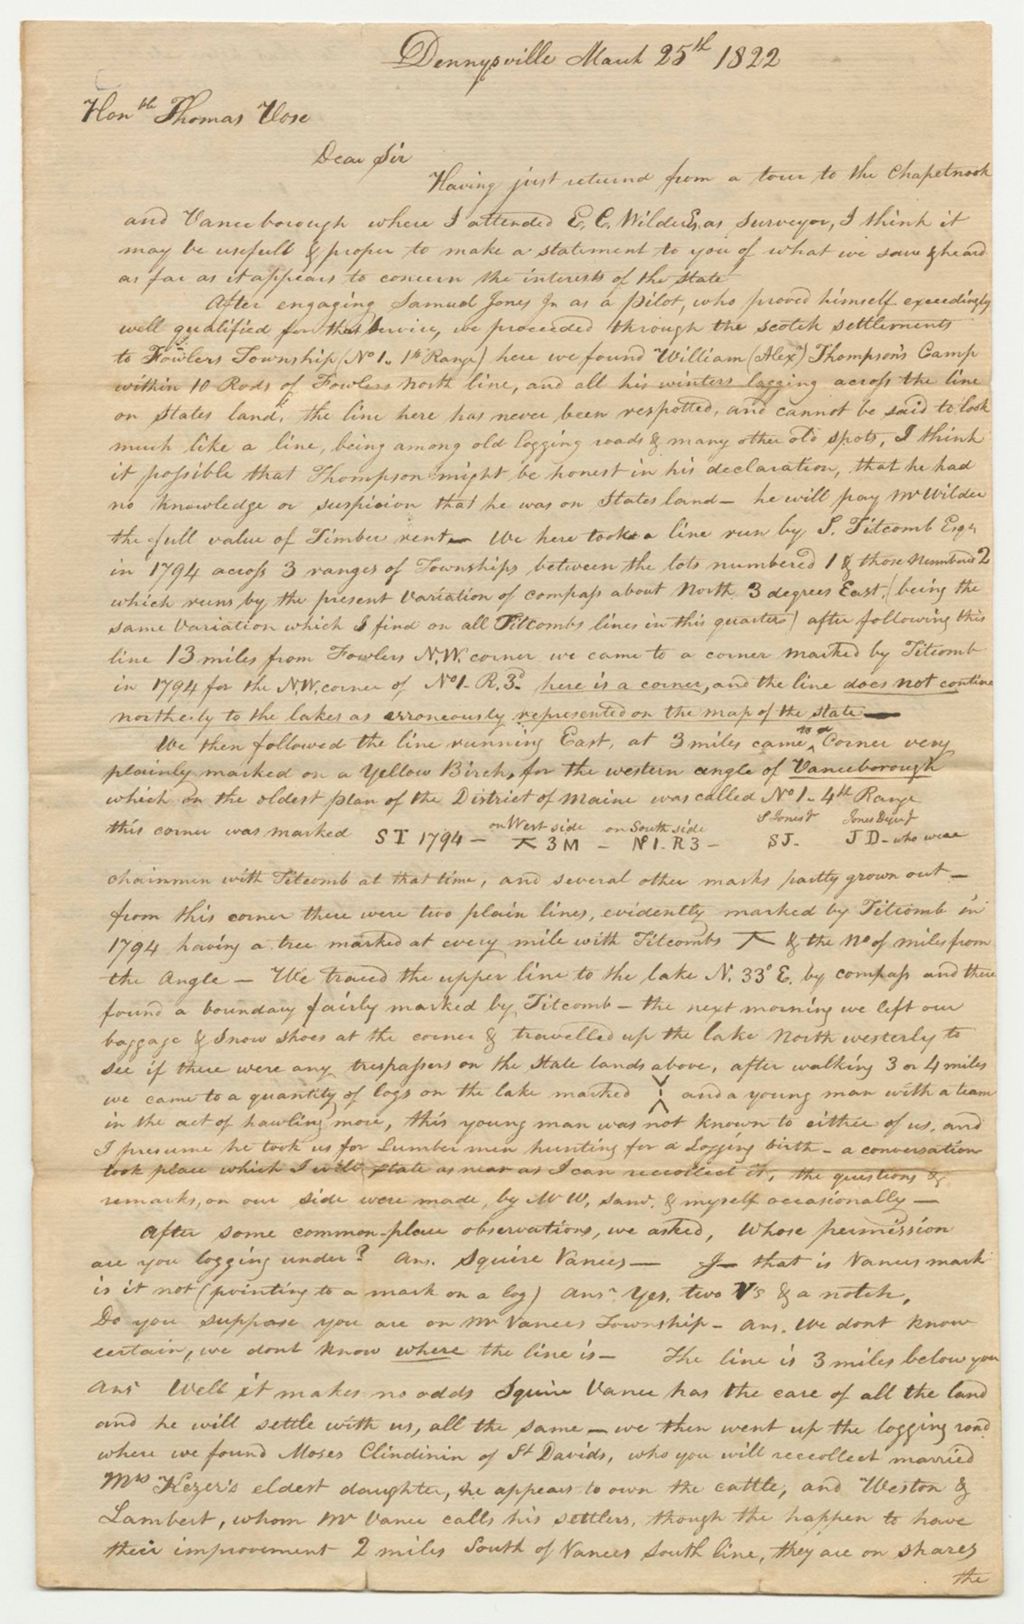 Dennysville March 25th 1822
Honble Thomas Vose
Dear Sir
Having just returnd from a tour to the Chapetnook
and Vanceborough where I attended E. C. Wilder Es. as Surveyor, I think it
may be usefull & proper to make a statement to you of what we saw & heard
as far as it appears to concern the interests of the State
After engaging Samuel Jones Jn as a pilot, who proved himself exceedingly
well qualified for that service, we proceeded through the scotch settlements
to Fowlers Township (No 1. 1st Range) here we found William (Alexr) Thompson's Camp
within 10 Rods of Fowlers north line, and all his winters logging across the line
on States land, the line here has never been respotted, and cannot be said to look
much like a line, being among old logging roads & many other old spots, I think
it possible that Thompson might be honest in his declaration, that he had
no knowledge or suspicion that he was on States land — he will pay Mr Wilder
the full value of Timber rent — We here took a line run by S. Titcomb Esqr
in 1794 across 3 ranges of Townships between the lots numbered 1 & those numberd 2
which runs by the present variation of compass about North 3 degrees East (being the
same variation which I find on all Titcombs lines in this quarter) after following this
line 13 miles from Fowlers N.W. corner we came to a corner marked by Titcomb
in 1794 for the N.W. corner of No 1. R. 3d. here is a corner, and the line does not continue
northerly to the lakes as erroneously represented on the map of the state —
We then followed the line running East, at 3 miles came to a Corner very
plainly marked on a Yellow Birch, for the western angle of Vanceborough
which on the oldest plan of the District of Maine was called No 1. 4th Range
this corner was marked ST 1794 — on West side ⊼ 3 M — on South side N 1. R 3 — S Jones Jr SJ. Jones Dyer Jr J D — who were
chainmen with Titcomb at that time, and several other marks partly grown out —
from this corner there were two plain lines, evidently marked by Titcomb in
1794 having a tree marked at every mile with Titcombs ⊼ & the No of miles from
the Angle — We traced the upper line to the lake N. 33° E. by compass and there
found a boundary fairly marked by Titcomb — the next morning we left our
baggage & Snow Shoes at the corner & travelled up the lake North westerly to
see if there were any trespassers on the State lands above, after walking 3 or 4 miles
we came to a quantity of logs on the lake marked and a young man with a team
in the act of hawling more, this young man was not known to either of us, and
I presume he took us for Lumber men hunting for a Logging birth — a conversation
took place which I will state as near as I can recollect it, the questions &
remarks, on our side were made, by Mr W, Saml. & myself occasionally —
After some common-place observations, we asked, Whose permission
are you logging under? Ans. Squire Vances — that is Vances mark
is it not (pointing to a mark on a log) Ansr Yes, two V's & a notch,
Do you suppose you are on Mr Vances Township — Ans. We dont know
certain, we dont know where the line is — The line is 3 miles below you
Ansr Well it makes no odds Squire Vance has the care of all the land
and he will settle with us, all the same — we then went up the logging road
where we found Moses Clindinin of St Davids, who you will recollect married
Mrs Kezer's eldest daughter, he appears to own the cattle, and Weston &
Lambert, whom Mr Vance calls his settlers, though the happen to have
their improvement 2 miles South of Vances South line, they are on shares
the